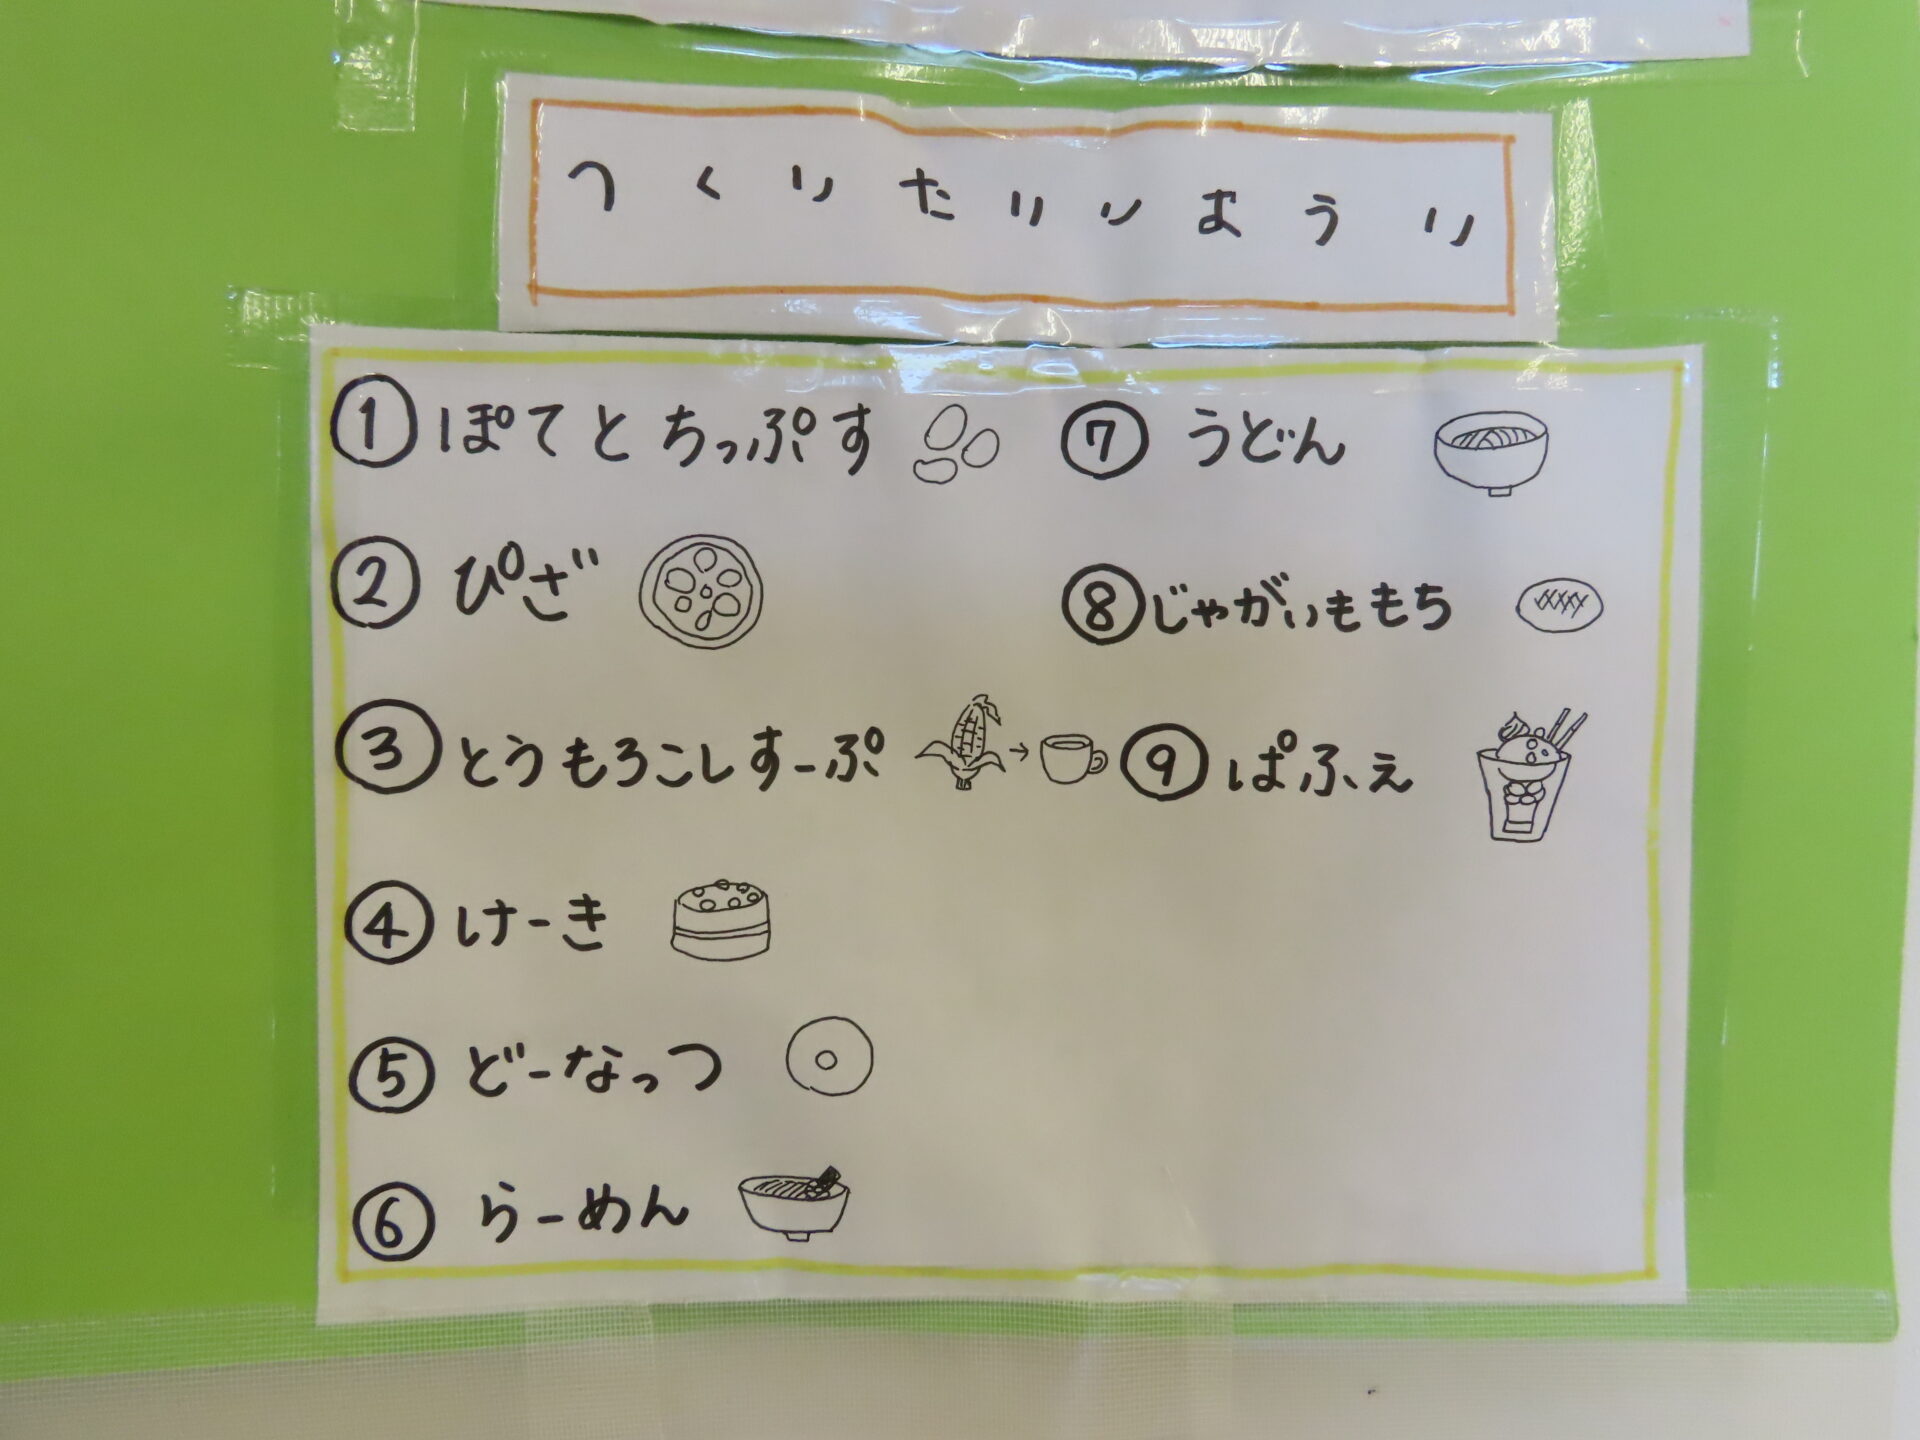 つくりたいりょうり
① ぽてとちっぷす
② ぴざ
③ とうもろこしすーぷ
④ けーき
⑤ どーなっつ
⑥ らーめん
⑦ うどん
⑧ じゃがいももち
⑨ ぱふぇ